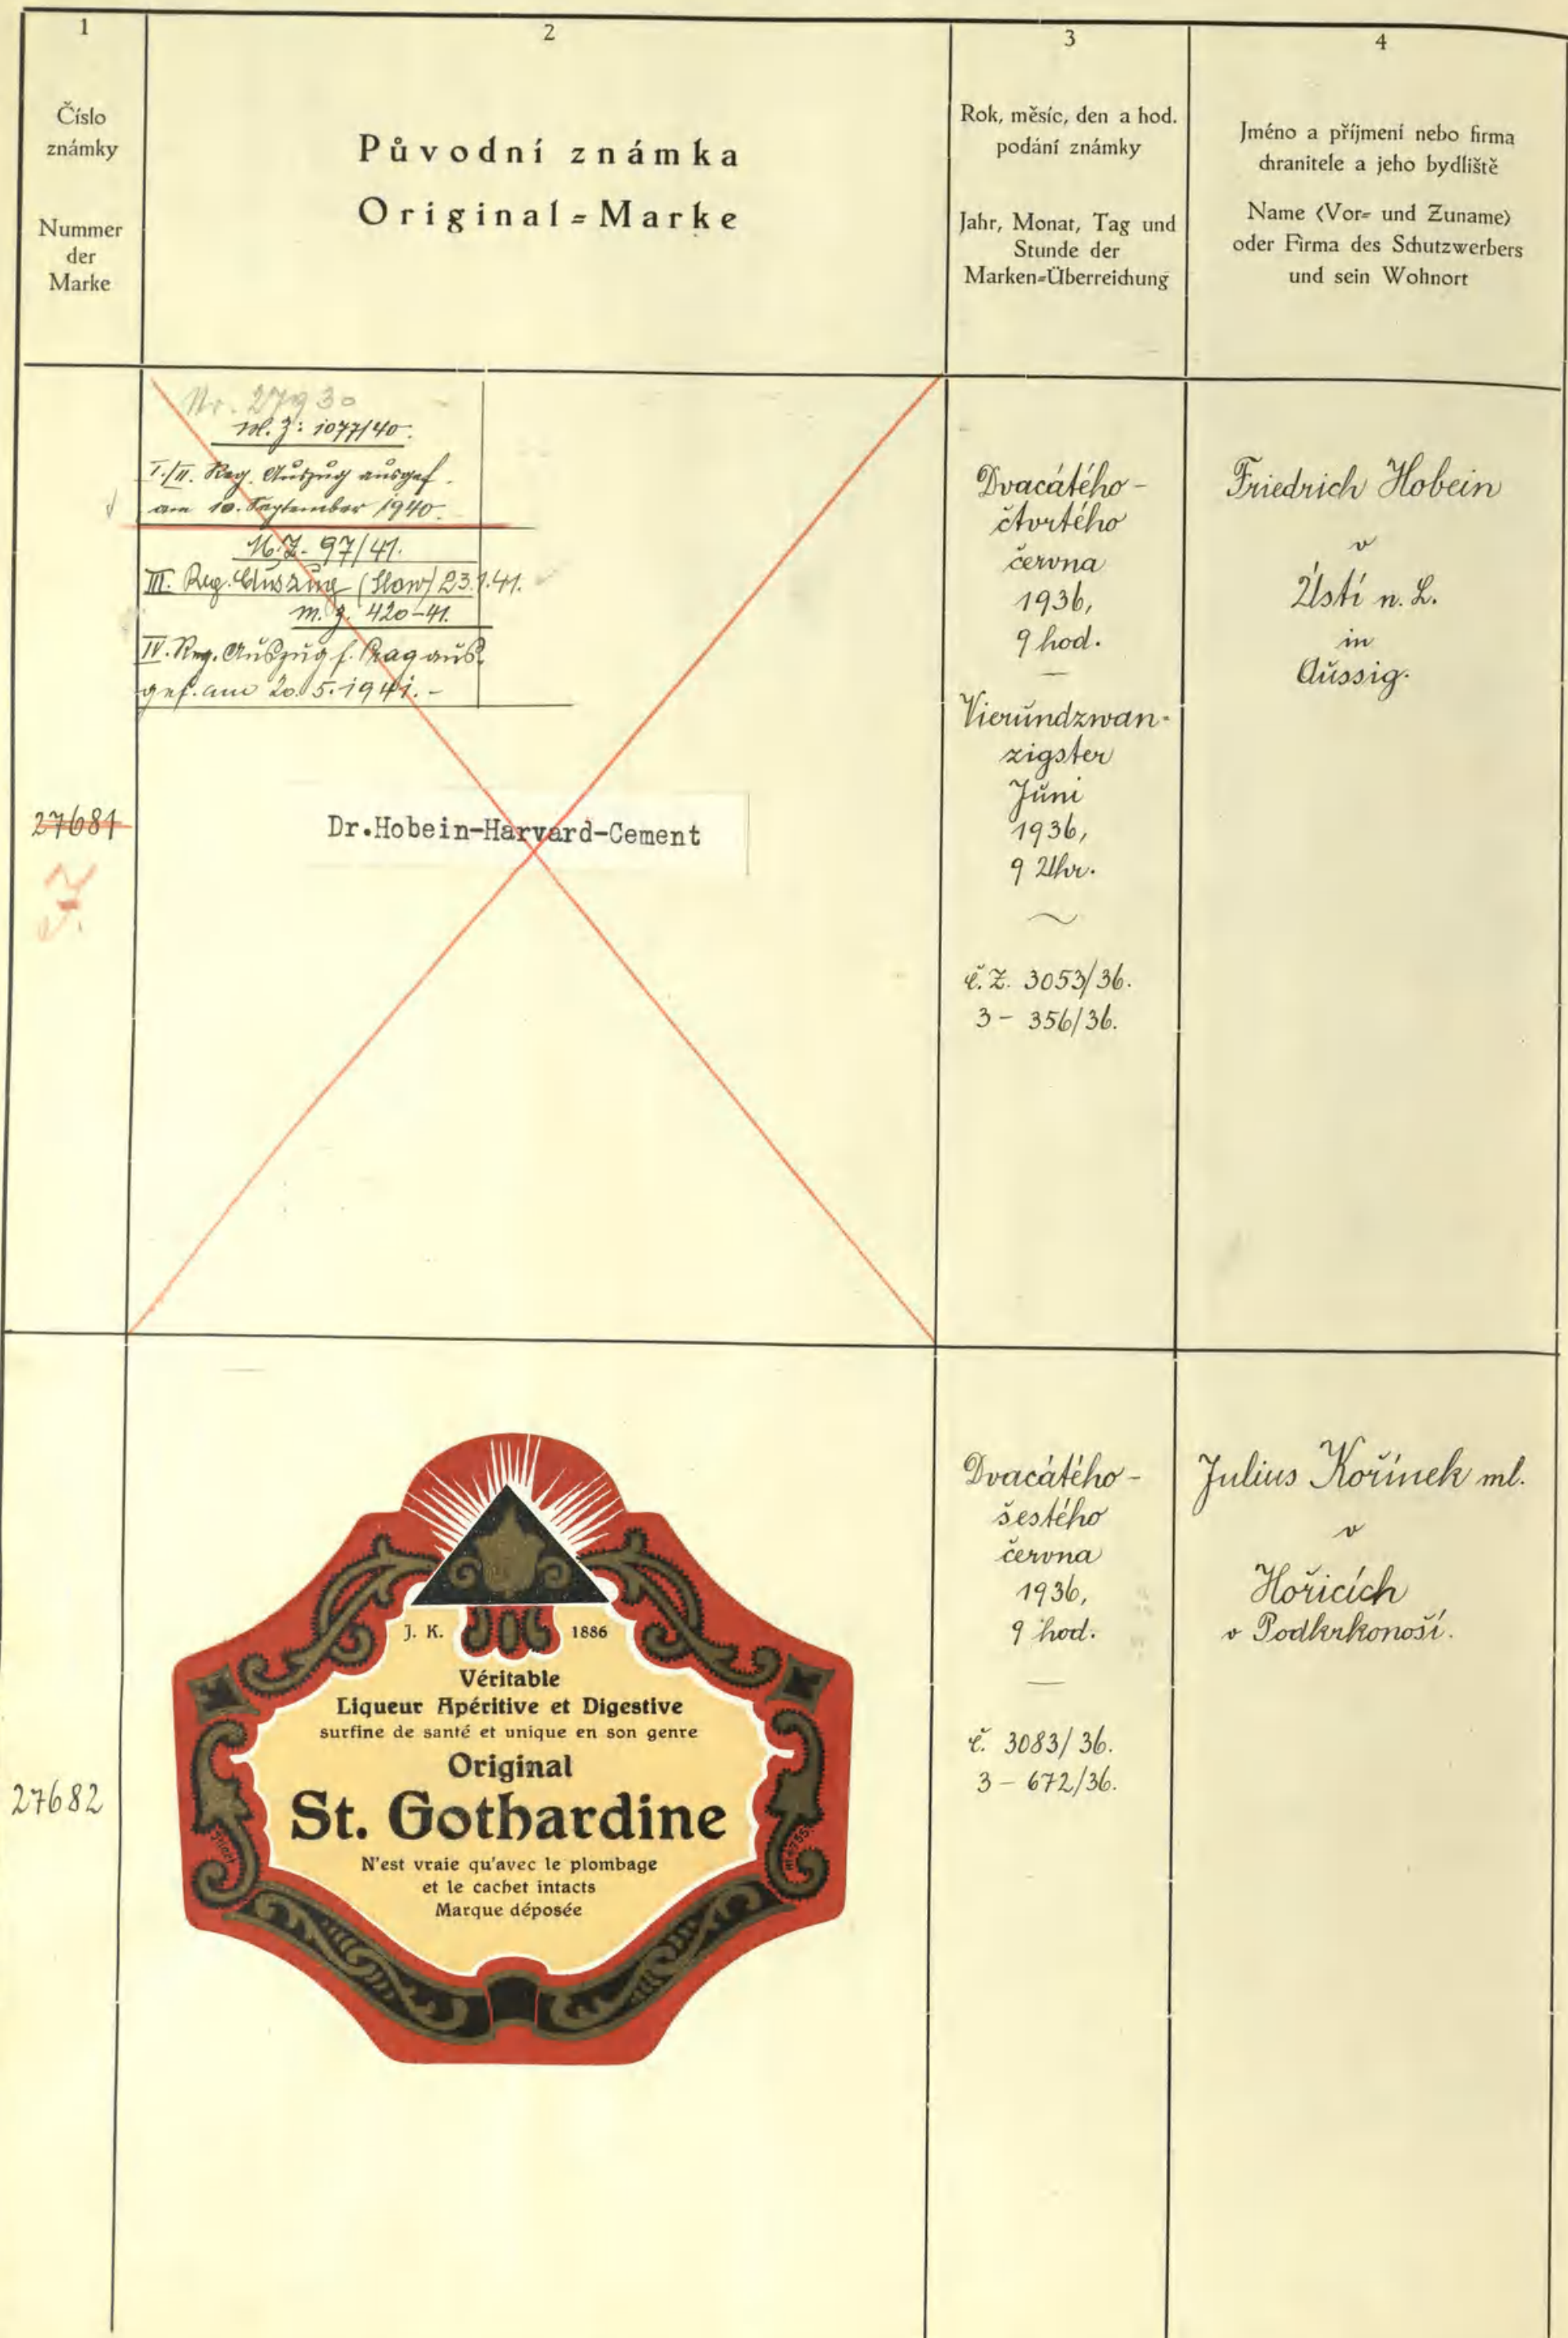 1
Číslo
známky
Nummer
der
Marke
2
Původní známka
Original=Marke
3
Rok, měsíc, den a hod.
podání známky
Jahr, Monat, Tag und
Stunde der
Marken=Überreichung
4
Jméno a příjmení nebo firma
chranitele a jeho bydliště
Name (Vor= und Zuname)
oder Firma des Schutzwerbers
und sein Wohnort
27681
Nr. 27930
M. Z: 1077/40.
I./II. Reg. Auszug ausgef.
am 10. September 1940.
M.Z. 97/41.
III. Reg. Auszug (Slow) 23.1.41.
M. Z. 420-41.
IV. Reg. Auszug f. Prag aus-
gef. am 20.5.1941.-
Dr.Hobein-Harvard-Cement
Dvacátého-
čtvrtého
června
1936,
9 hod.
Vierundzwan-
zigster
Juni
1936,
9 Uhr.
č.Z. 3053/36.
3- 356/36.
Friedrich Hobein
v
Ústí n. L.
in
Aussig.
27682
J. K. 1886
Véritable
Liqueur Apéritive et Digestive
surfine de santé et unique en son genre
Original
St. Gothardine
N'est vraie qu'avec le plombage
et le cachet intacts
Marque déposée
Dvacátého-
šestého
června
1936,
9 hod.
č. 3083/36.
3- 672/36.
Julius Kořínek ml.
v
Hořicích
v Podkrkonoší.